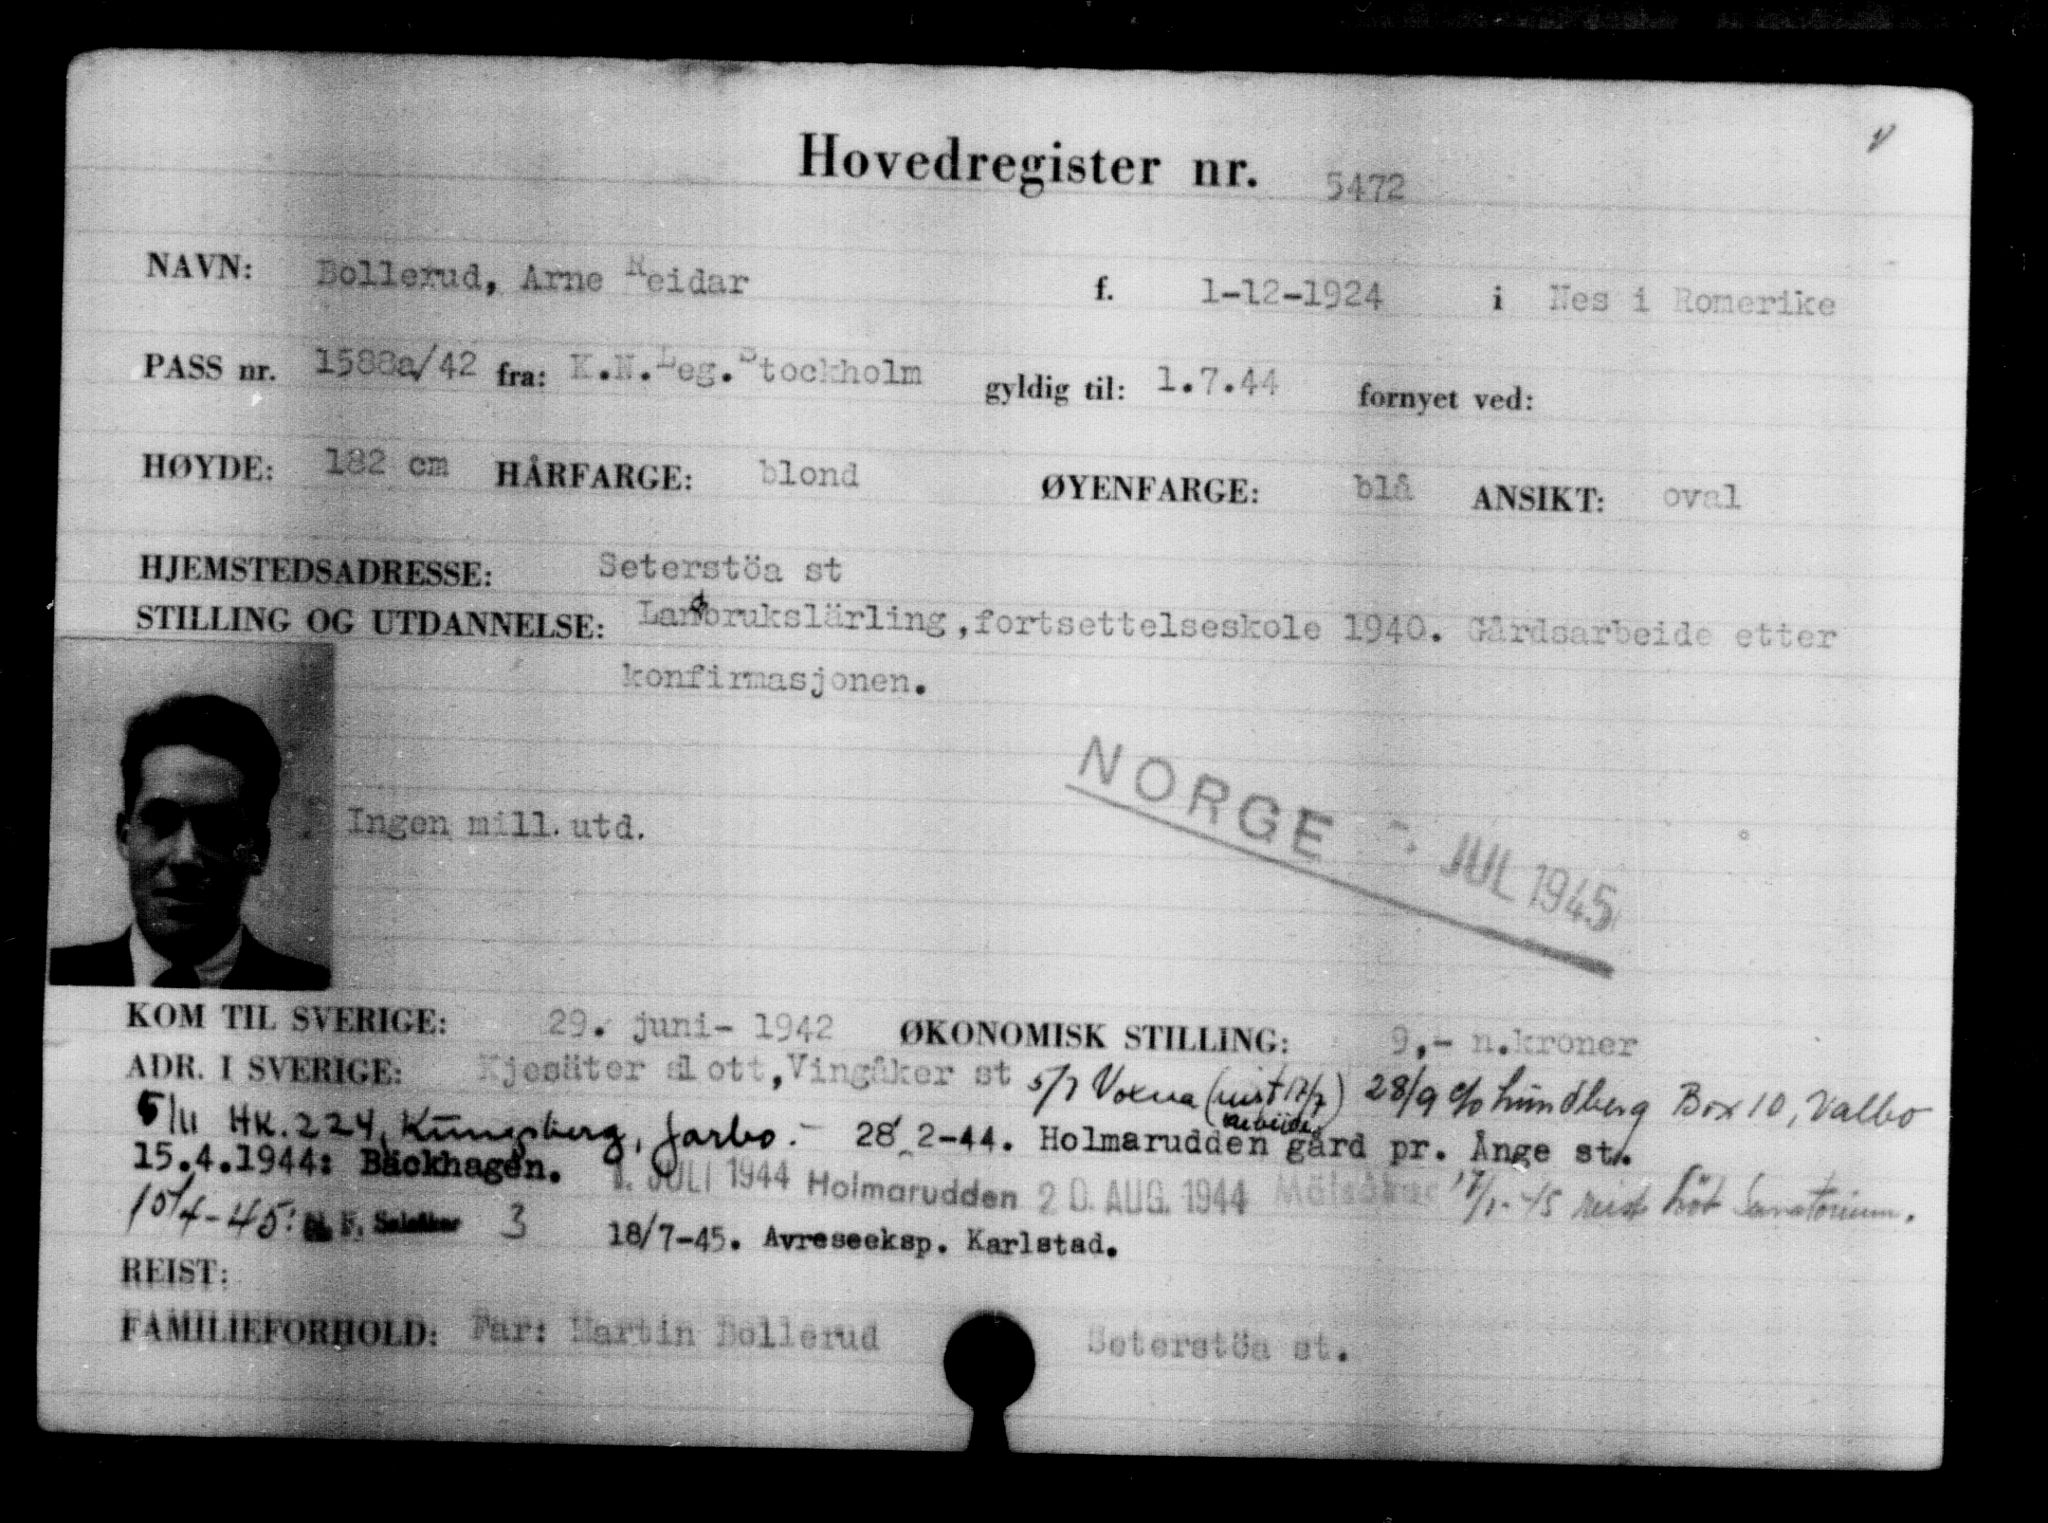 Hovedregister nr. 5472
NAVN: Bollerud, Arne Reidar f. 1-12-1924 i Nes i Romerike
PASS nr. 1588a/42 fra: K.N.Leg.Stockholm gyldig til: 1.7.44 fornyet ved:
HØYDE: 182 cm HÅRFARGE: blond ØYENFARGE: blå ANSIKT: oval
HJEMSTEDSADRESSE: Seterstöa st
STILLING OG UTDANNELSE: Landbrukslärling, fortsettelseskole 1940. Gårdsarbeide etter
konfirmasjonen.
NORGE JUL 1945
Ingen mill.utd.
KOM TIL SVERIGE: 29. juni- 1942 ØKONOMISK STILLING: 9,- n.kroner
ADR. I SVERIGE: Kjesäter slott, Vingåker st 5/7 Voxna (reist 17/7) 28/9 c/o Lundberg Box 10, Valbo
arbeide
5/11 HK. 224, Kungsberg, Jarbo.- 28 2-44. Holmarudden gård pr. Ånge st.
15.4.1944: Bäckhagen. 1. JULI 1944 Holmarudden 20. AUG. 1944 17/1-45 reist Sanatorium.
10/4-45: 3 18/7-45. Avreseeksp. Karlstad.
REIST:
FAMILIEFORHOLD: Far: Martin Bollerud Seterstöa st.